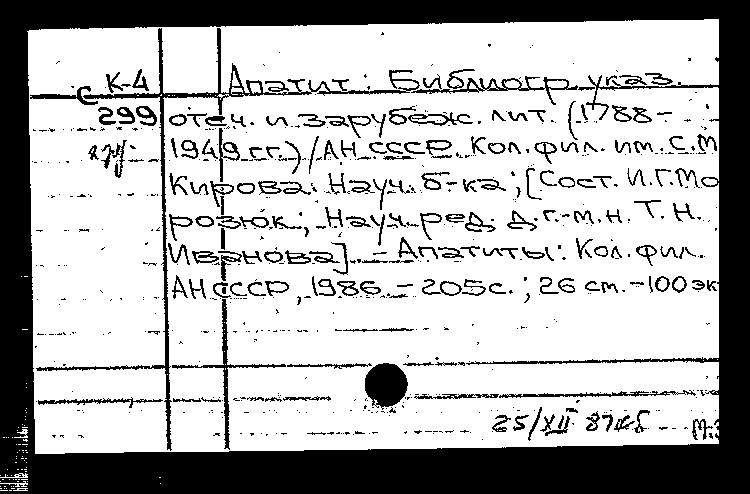 К-4 Апатит: Библиогр. указ.
С
299 отеч. и зарубеж. лит. (1788-
1949 гг.)/АН СССР. Кол. фил. им. С.М
Кирова. Науч. б-ка; [Сост. И.Г. Мо
розюк; Науч. ред. д.г.-м.н. Т.Н.
Иванова]. - Апатиты: Кол. фил.
АН СССР, 1986. - 205 с.; 26 см. - 100 эк
25/XII 87